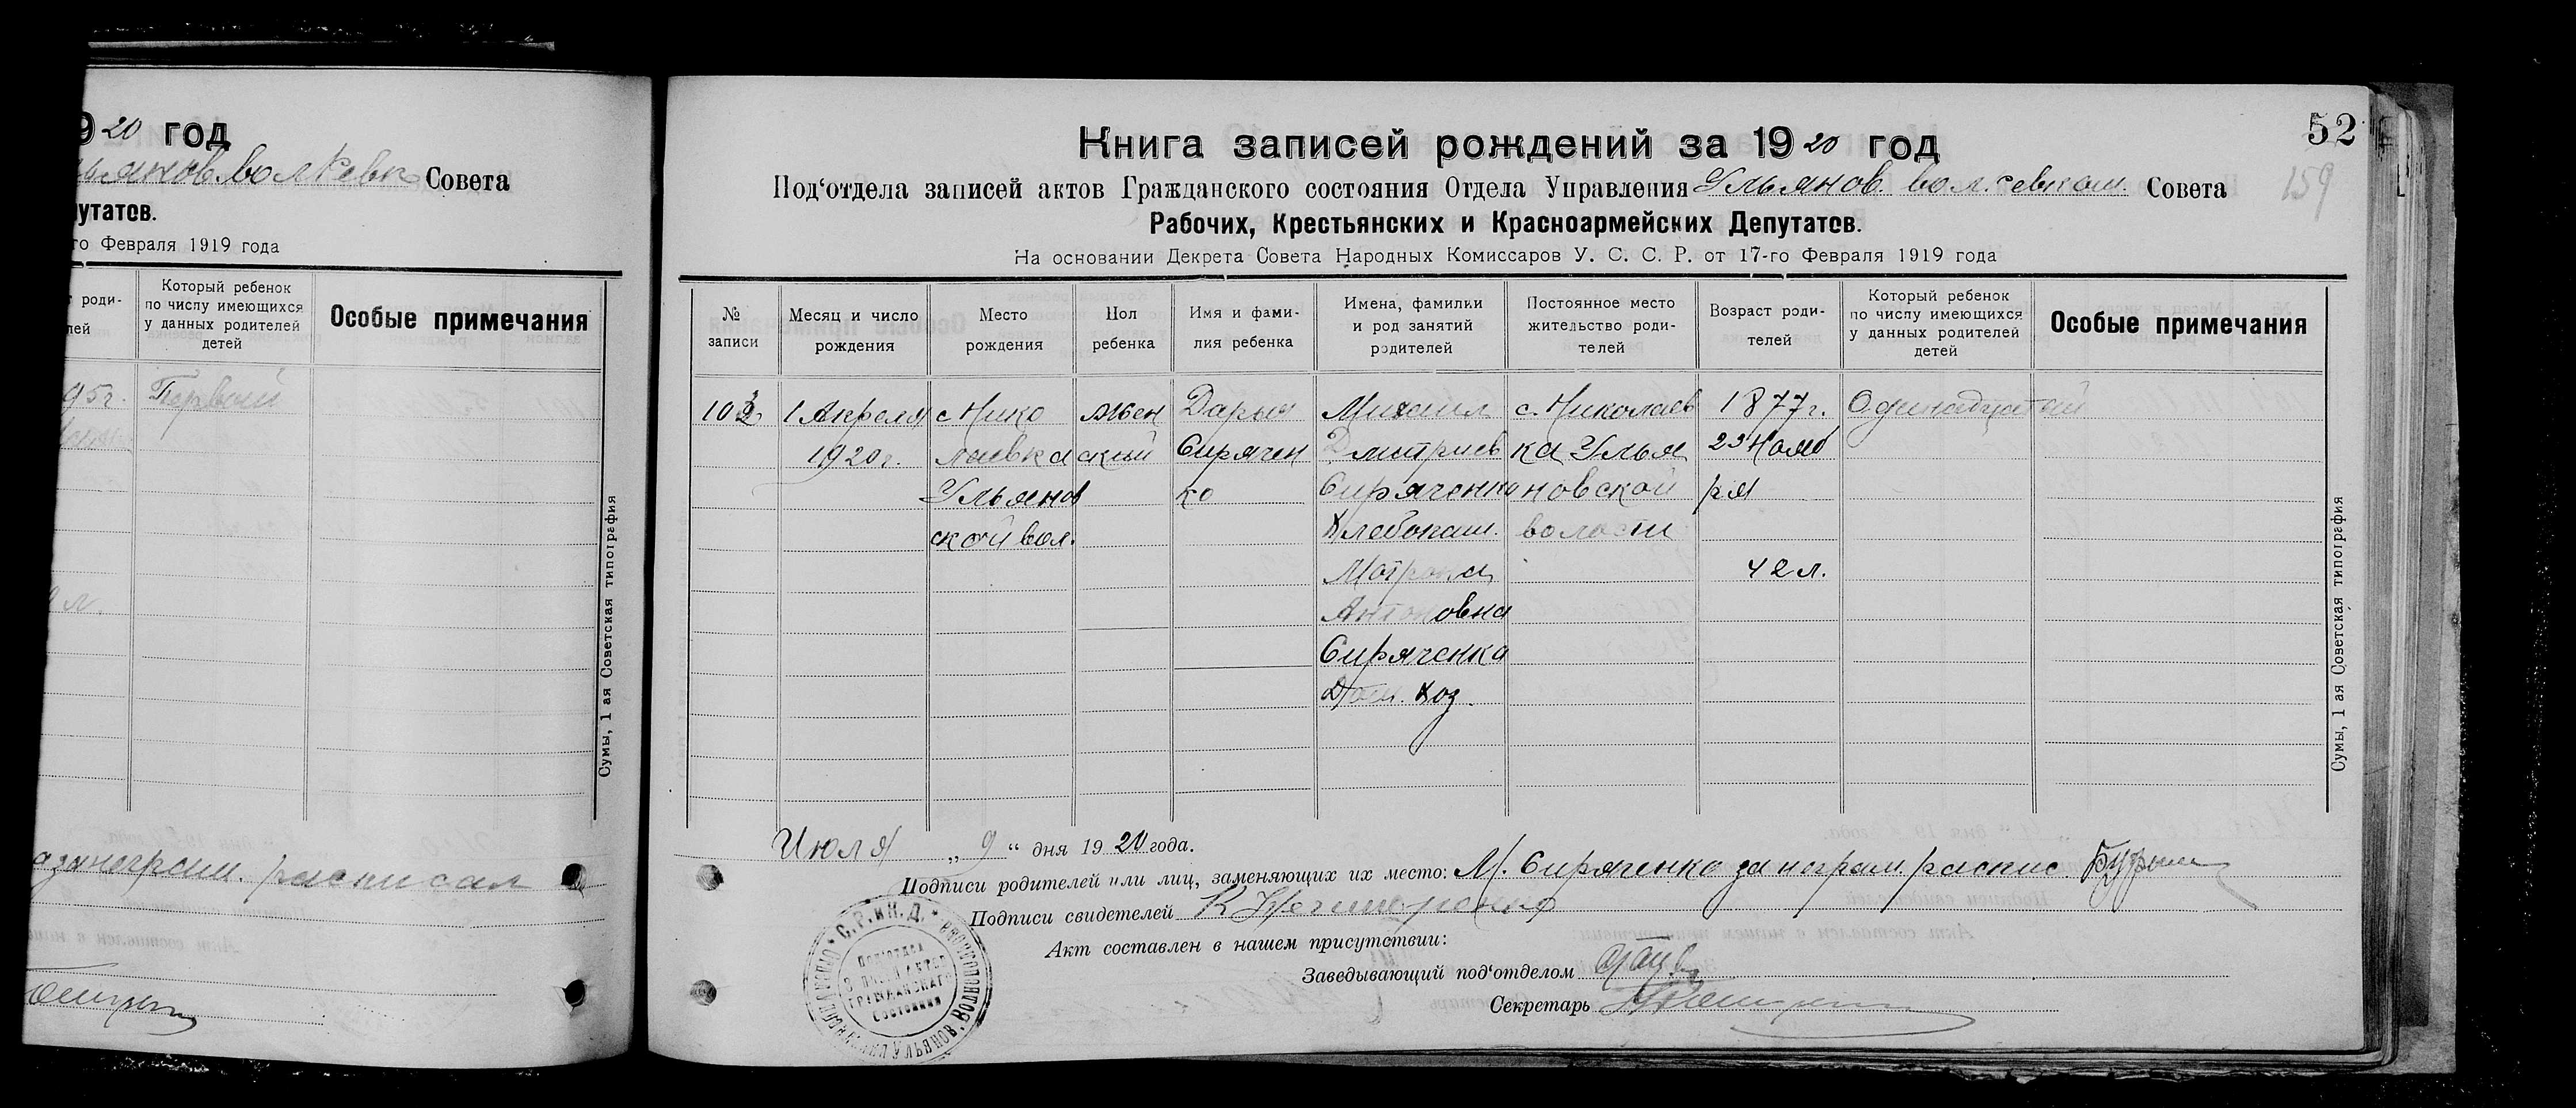 20 год
Совета
путатов.
го Февраля 1919 года
роди-
лей
Который ребенок
по числу имеющихся
у данных родителей
детей
Особые примечания
95г.
Первый
Сумы, 1 ая Советская типография
расписал
52
159
Книга записей рождений за 1920 год
Под‘отдела записей актов Гражданского состояния Отдела Управления Ульянов. вол. Совета
Рабочих, Крестьянских и Красноармейских Депутатов.
На основании Декрета Совета Народных Комиссаров У. С. С. Р. от 17-го Февраля 1919 года
№
записи
Месяц и число
рождения
Место
рождения
Пол
ребенка
Имя и фами-
лия ребенка
Имена, фамилии
и род занятий
родителей
Постоянное место
жительство роди-
телей
Возраст роди-
телей
Который ребенок
по числу имеющихся
у данных родителей
детей
Особые примечания
1 Апреля
1920г.
с Нико
лаевка
Ульянов
ской вол.
жен
ский
Дарья
Сирячен
ко
Михаил
Дмитриев
Сиряченко
Хлебопаш.
Мотрона
Антоновна
Сиряченко
Дом. хоз.
с. Николаев
ка Улья
новской
волости
1877г.
23 Нояб
ря
42 л.
Одинадцатый
Сумы, 1 ая Советская типография
Июля „ 9 “ дня 1920 года.
Подписи родителей или лиц, заменяющих их место: М. Сиряченко за неграм. распис.
Подписи свидетелей
Акт составлен в нашем присутствии:
Заведывающий под‘отделом
Секретарь
С.Р. и К. Д.
Под‘отдел
Записи актов
Гражданскаго
Состояния